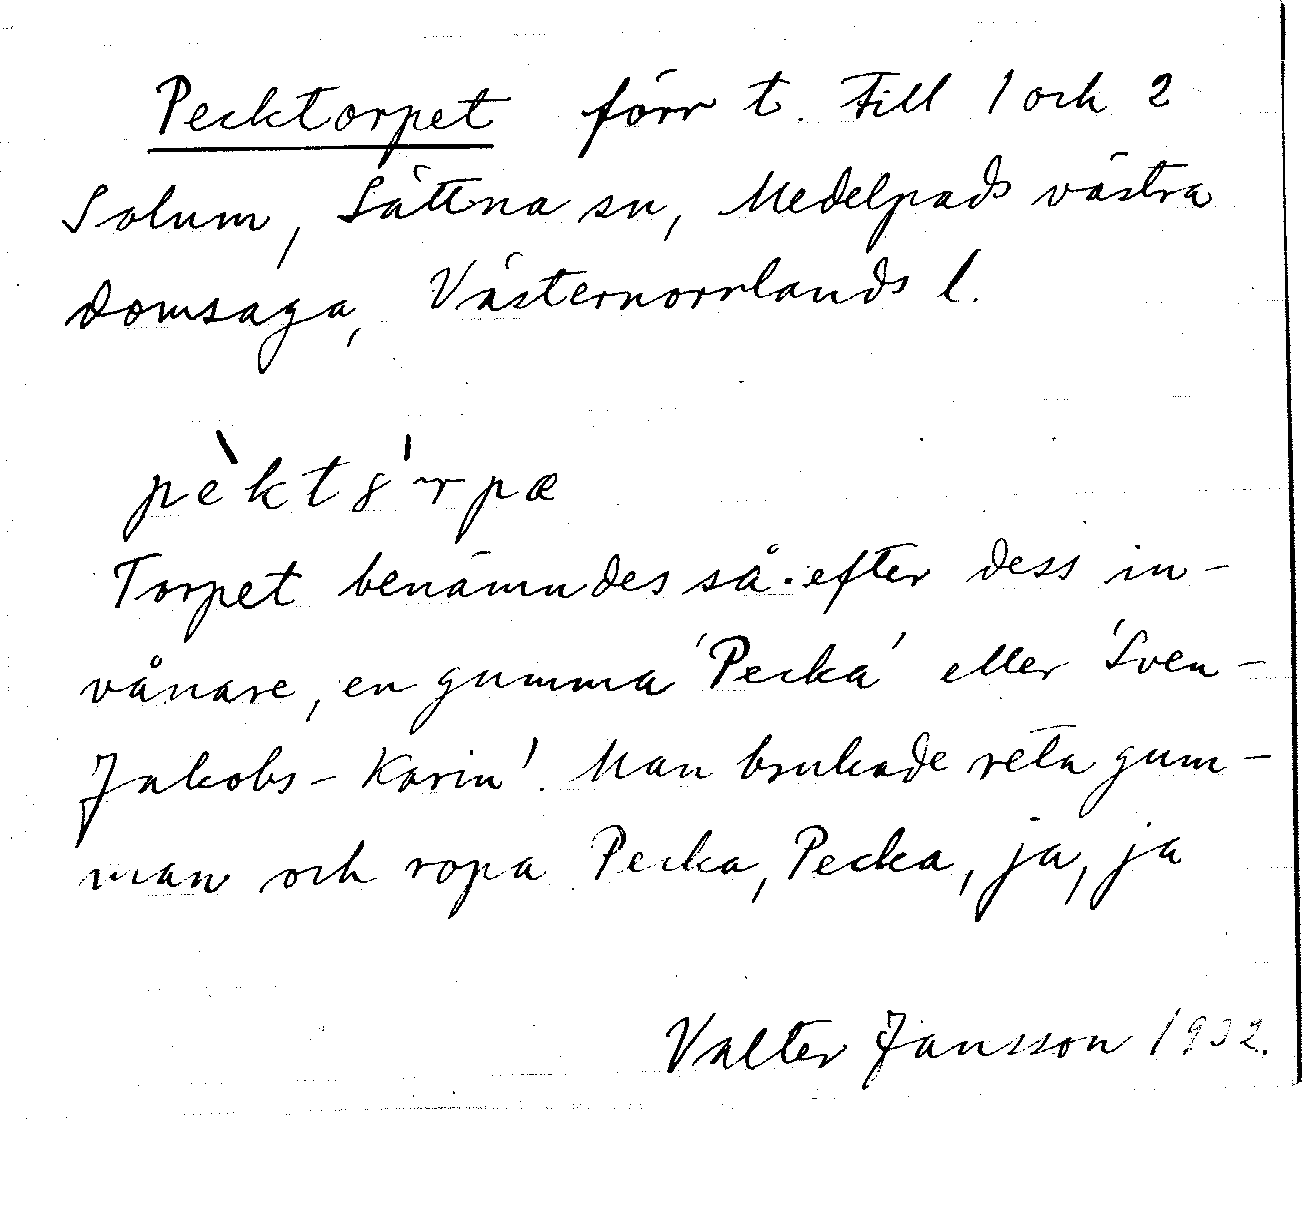 Pecktorpet förr t. till 1 och 2
Solum, Sättna sn, Medelpads västra
domsaga, Västernorrlands l.
pèkt8'rpæ
Torpet benämndes så efter dess in-
vånare, en gumma 'Pecka' eller 'Sven-
Jakobs-Karin'. Man brukade reta gum-
man och ropa Pecka, Pecka, ja, ja
Valter Jansson 1932.